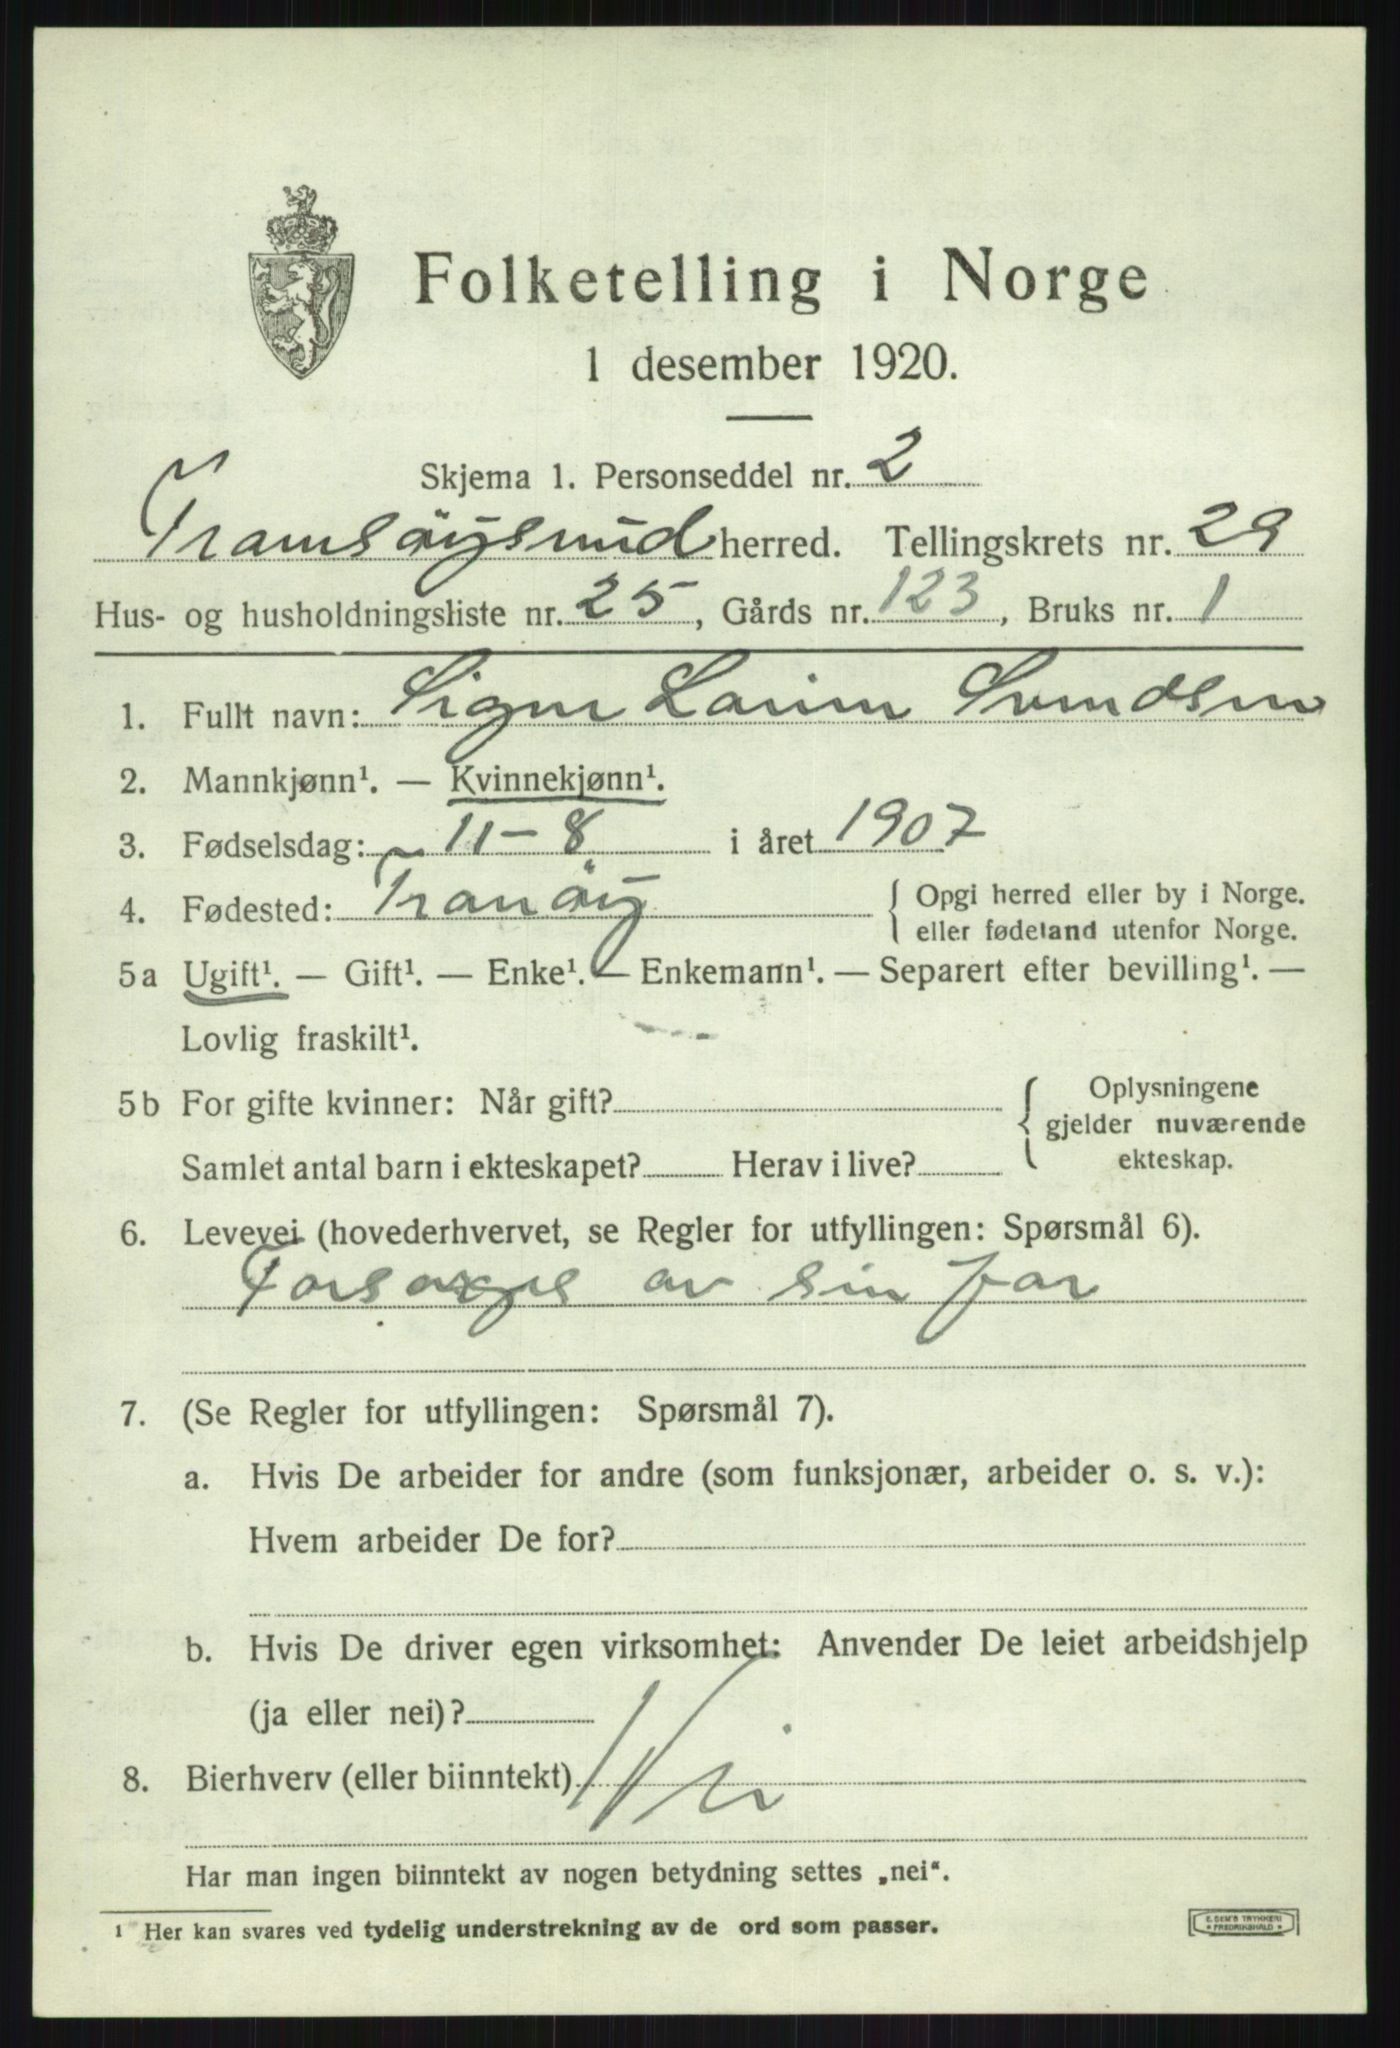 Folketelling i Norge
1 desember 1920.
Skjema 1. Personseddel nr. 2
Tromsøysund herred. Tellingskrets nr. 29
Hus- og husholdningsliste nr. 25, Gårds nr. 123, Bruks nr. 1
1. Fullt navn: Signe Svendsen
2. Mannkjønn¹. — Kvinnekjønn¹.
3. Fødselsdag: 11-8 i året 1907
4. Fødested: Tranöy { Opgi herred eller by i Norge.
eller fødeland utenfor Norge.
5a Ugift¹. — Gift¹. — Enke¹. — Enkemann¹. — Separert efter bevilling¹. —
Lovlig fraskilt¹.
5b For gifte kvinner: Når gift? { Oplysningene
gjelder nuværende
Samlet antal barn i ekteskapet? Herav i live? ekteskap.
6. Levevei (hovederhvervet, se Regler for utfyllingen: Spørsmål 6).
Forsørges av sin far
7. (Se Regler for utfyllingen: Spørsmål 7).
a. Hvis De arbeider for andre (som funksjonær, arbeider o. s. v.):
Hvem arbeider De for?
b. Hvis De driver egen virksomhet: Anvender De leiet arbeidshjelp
(ja eller nei)?
8. Bierhverv (eller biinntekt) Nei
Har man ingen biinntekt av nogen betydning settes „nei“.
¹ Her kan svares ved tydelig understrekning av de ord som passer.
E. SEM'S TRYKKERI
* FREDRIKSHALD *